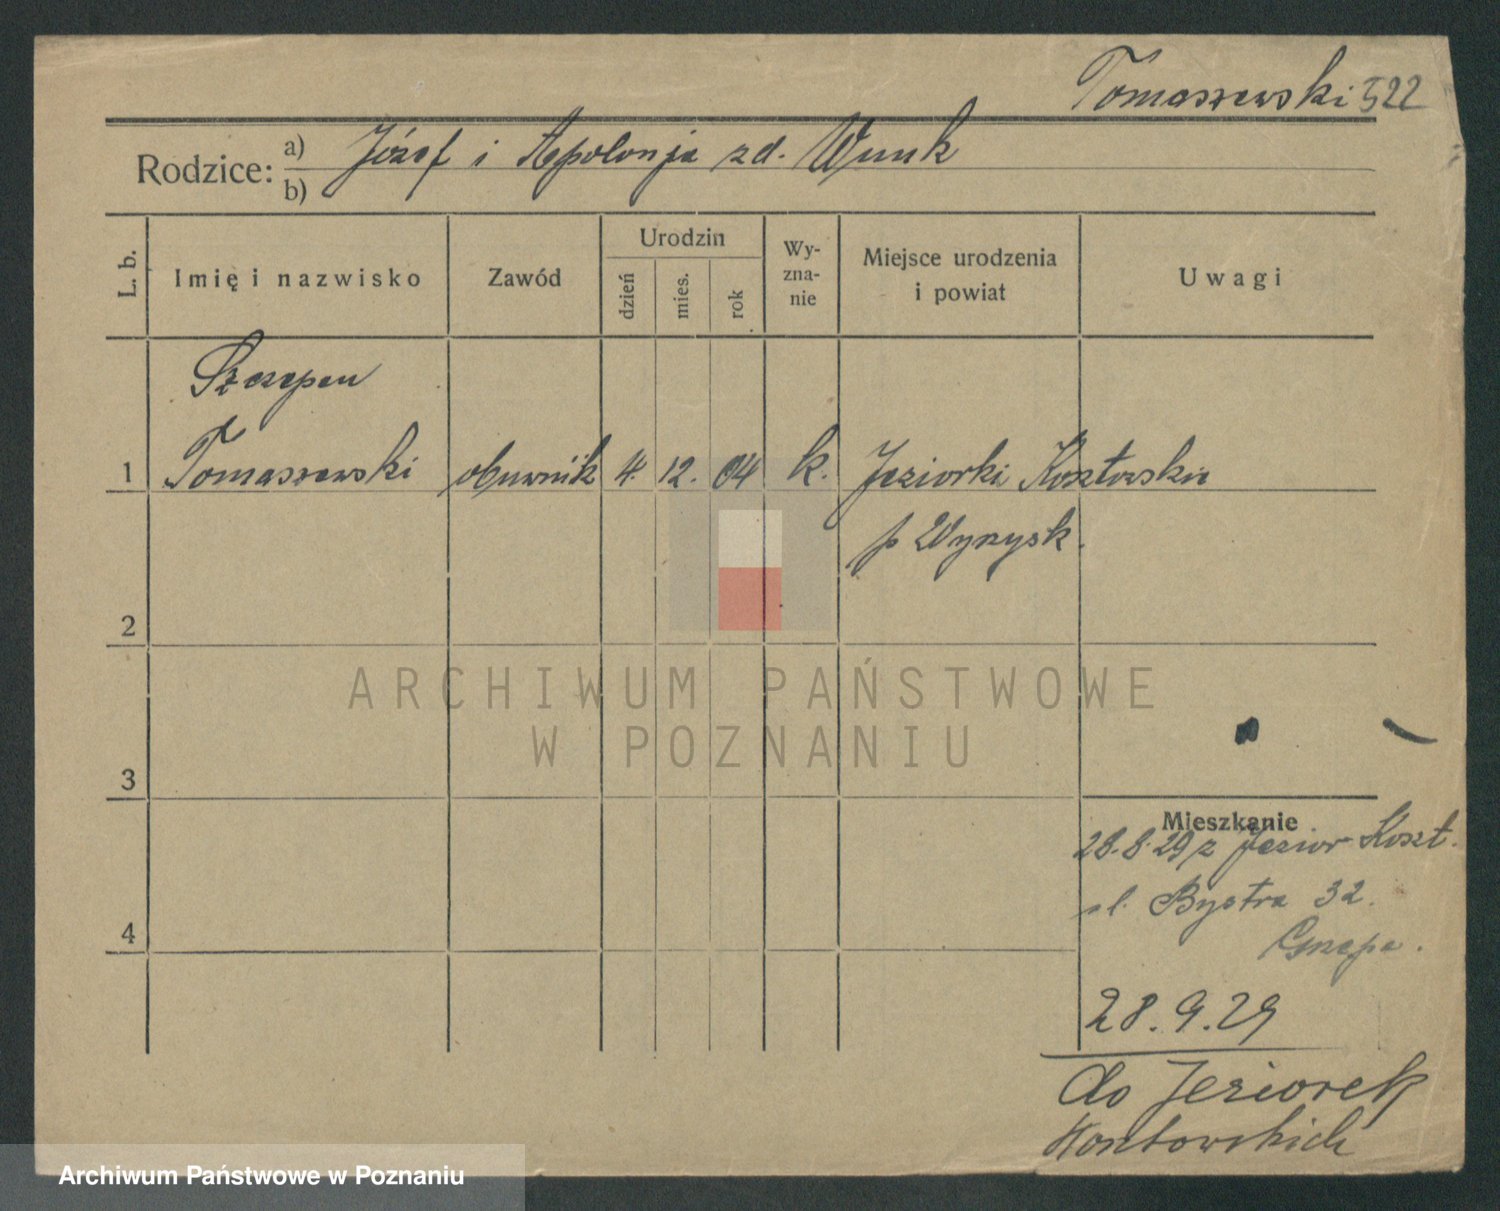 Tomaszewski 522
Rodzice: a) Józef i Apolonja zd. Wunk
b)
L. b.
Imię i nazwisko
Zawód
Urodzin
dzień
mies.
rok
Wy-
zna-
nie
Miejsce urodzenia
i powiat
Uwagi
Szczepan
1 Tomaszewski obuwnik 4. 12. 04 k. Jeziorki Kosztowskie
p Wyrzysk.
2
ARCHIWUM PAŃSTWOWE
W POZNANIU
3
Mieszkanie
28.8.29 z Jezior Koszt.
ul. Bystra 32.
4
28.9.29
do Jeziorek
Kosztowskich
Archiwum Państwowe w Poznaniu